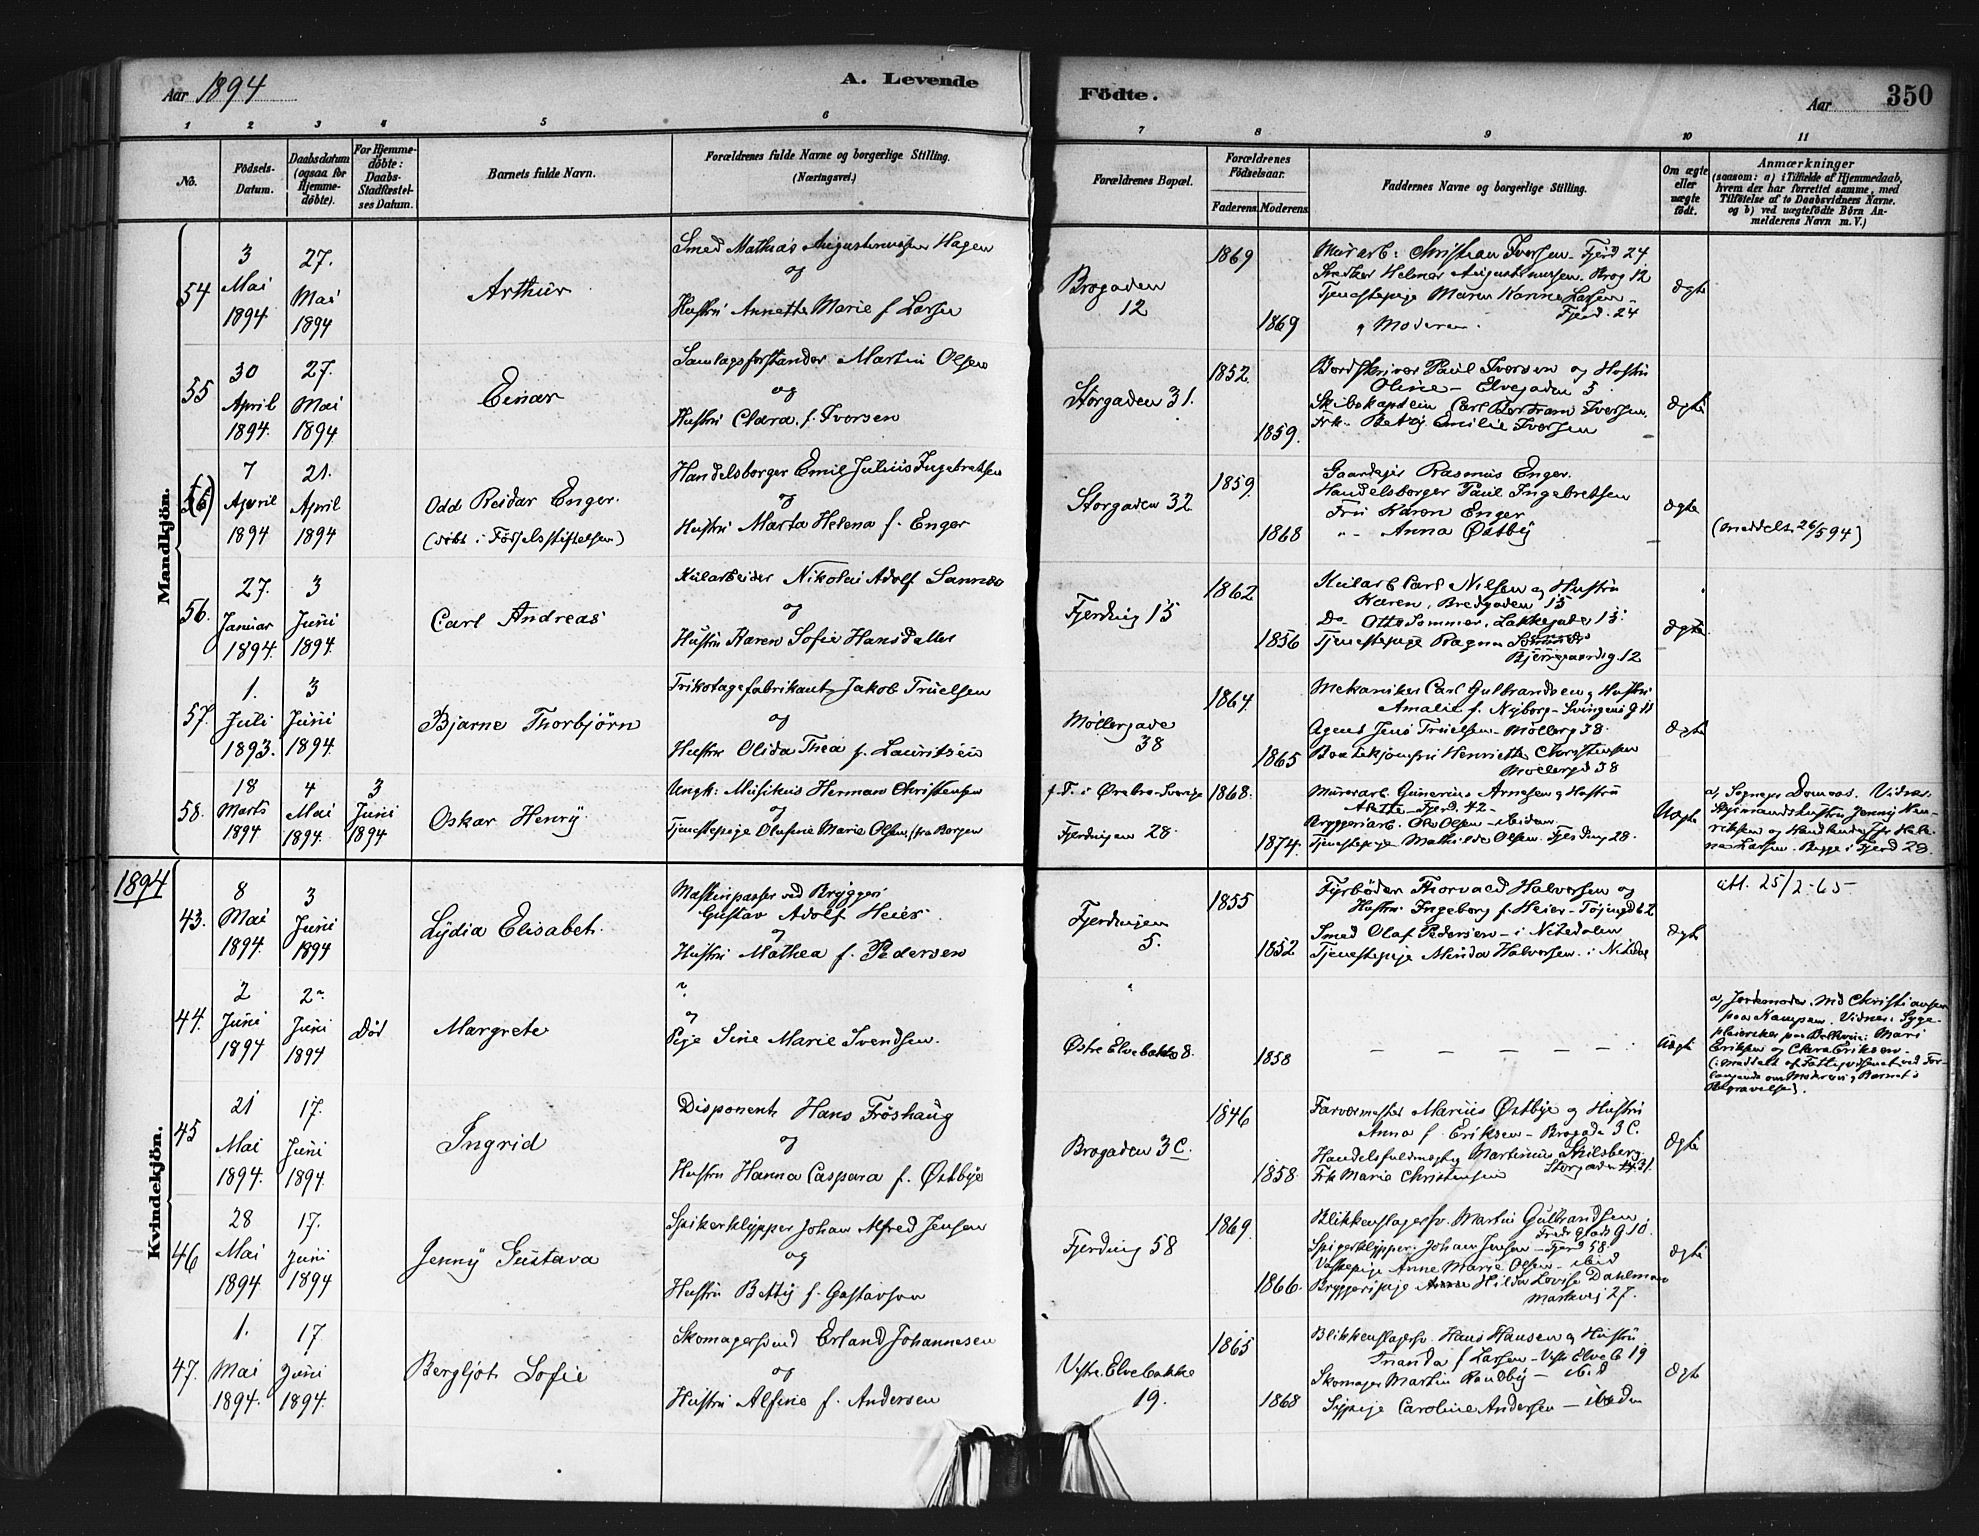 Aar 1894
A. Levende
Födte.
Aar
350
1 2 3 4 5 6 7 8 9 10 11
No.
Födsels-
Datum.
Daabsdatum
(ogsaa for
Hjemme-
döbte).
For Hjemme-
döbte:
Daabs-
Stadfæstel-
ses Datum.
Barnets fulde Navn.
Forældrenes fulde Navne og borgerlige Stilling.
(Næringsvei.)
Forældrenes Bopæl.
Forældrenes
Födselsaar.
Faderens. Moderens.
Faddernes Navne og borgerlige Stilling.
Om ægte
eller
uægte
födt.
Anmærkninger
(saasom: a) i Tilfælde af Hjemmedaab,
hvem der har forrettet samme, med
Tilföielse af to Daabsvidners Navne.
og b) ved uægtefödte Börn An-
melderens Navn m. V.)
Mandkjön.
54
3
Mai
1894
27.
Mai
1894
Arthur
Smed Mathias Augustinussen Hagen
og
Hustru Annette Marie f. Larsen
Brogaden
12
1869
1869
Murarb: Christian Iversen Fjerd 24
Helmer Augustinussen Brog 12
Tjenestepige Maren Karine Larsen
Fjerd. 24
Moderen.
Ægte
55
30
April
1894.
27.
Mai
1894
Einar
Samlagsforstander Martin Olsen
og
Hustru Clara f. Iversen
Storgaden 31.
1852.
1859.
Paul Iversen og Hustru
Oline - Elvegaden 5
Skibskaptein Carl Bertram Iversen.
Frk. Betzy Emilie Iversen
Ægte
7
April
1894
21.
April
1894
Odd Reidar Enger.
(döbt i Födselsstiftelsen)
Handelsborger Emil Julius Ingebretsen
og
Hustru Marta Helena f. Enger
Storgaden 32
1859.
1868
Gaardejer Rasmus Enger.
Handelsborger Paul Ingebretsen
Fru Karen Enger
Anna Østby
Ægte
(meddelt 26/5 94)
56.
27.
Januar
1894.
3
Juni
1894.
Carl Andreas
Nikolai Adolf Sannæs
og
Hustru Karen Sofie Hansdatter
Fjerding 15
1862
1856
Carl Nilsen og Hustru
Karen, Bredgaden 15
Do Otto Sommer, Lakkegade 15.
Tjenestepige Ragna
Bjerregaardsg. 12
Ægte
57.
1.
Juli
1893.
3
Juni
1894.
Bjarne Thorbjörn
Trikotagefabrikant Jakob Truelsen
og
Hustru Olida Thea f. Lauritsen
Møllergade
38
1864
1865
Mekaniker Carl Gulbrandsen og Hustru
Amalie f. Nyborg - Svingens g 11
Agent Jens Truelsen - Møllerg 38.
Henriette Christensen
Møllergd 38
Ægte
58.
18
Marts
1894
4
Mai
1894.
3
Juni
1894
Oskar Henry
Ungk: Musikus Herman Christensen
og
Tjenestepige Olufine Marie Olsen, (fra Borgen
f. T. i Ørebro - Sverige
Fjerdingen 28.
1868.
1874.
Murerarb. Gunerius Arnesen og Hustru
Anette - Fjerd. 42 -
Bryggeriarb. Ole Olsen - ibidem -
Tjenestepige Mathilde Olsen. Fjerding 28.
Uægte
Hustru Jenny Hen-
riksen og
Larsen. Begge i Fjerd 28.
1894
Kvindekjön.
43.
8
Mai
1894.
3
Juni
1894
Lydia Elisabet.
Maskinpasser ved Bryggeri
Gustav Adolf Heier.
og
Hustru Mathea f. Pedersen
Fjerdingen
5.
1855
1852
Fyrböder Thorvald Halvorsen og
Hustru Ingeborg f. Heier - Töjengd 62
Smed Olaf Pedersen - i Nitedalen
Tjenestepige Minda Halvorsen. i Nitedal
Ægte
att. 25/2-65-
44.
2
Juni
1894
2
Juni
1894
Död
Margrete
?
og
Pige Sine Marie Svendsen.
Østre Elvebakke 8.
1858
- - - - - -
Uægte
a) Jordemoder Christiansen
paa Kampen. Vidner: Syge-
pleiersker Mari
Eriksen og Clara Eriksen -
Begravelse).
45
21
Mai
1894.
17.
Juni
1894.
Ingrid
Disponent Hans Fröshaug
og
Hustru Hanna Caspara f. Østbye
Brogaden 3 C.
1846
1858.
Farvermester Marius Østbye og Hustru
Anna f. Eriksen - Brogade 3 C.
Handelsfuldmægtig Martinius Skilsberg
Storgaden
Frk Marie Christensen
Ægte
46
28
Mai
1894
17.
Juni
1894
Jenny Gustava
Spikerklipper Johan Alfred Jensen
og
Hustru Betty f. Gustavson
Fjerding 58
1869.
1866.
Blikkenslagersv. Martin Gulbrandsen
10.
Spigerklipper Johan Jensen - Fjerd 58.
Vaskepige Anne Marie Olsen - ibid
Bryggeripige Hilda Lovise Dahlman
Markvej 27.
Ægte
47.
1.
Mai
1894.
17
Juni
1894.
Bergljot Sofie
Skomagersvend Erland Johannesen
og
Hustru Alfine f. Andersen
Vestre Elvebakke
19.
1865
1868
Blikkenslagersv. Hans Hansen og Hustru
f Larsen - Vestr Elveb 19
Skomager Martin Randby - ibid
Sypige Caroline Andersen - ibidem
Ægte